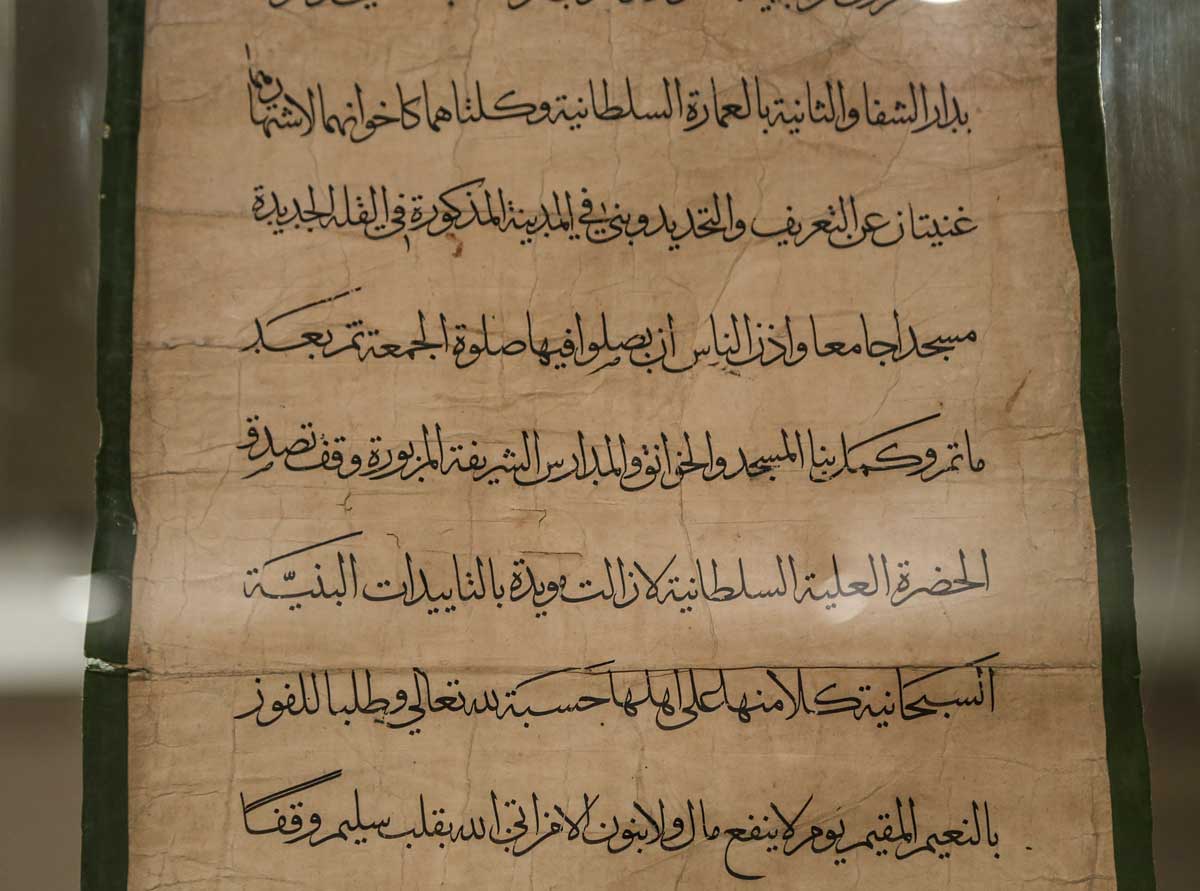 بدار الشفا والثانية بالعمارة السلطانية وكلتاهما كاخوانهما لاشتهارهما
غنيتان عن التعريف والتحديد وبنى في المدينة المذكورة في القلة الجديدة
مسجدا جامعا واذن الناس ان يصلوا فيها صلوة الجمعة ثم بعد
ما تم وكمل بنا المسجد والخوانق والمدارس الشريفة المزبورة وقف تصدق
الحضرة العلية السلطانية لازالت مويدة بالتاييدات
السبحانية كلا منها على اهلها حسبة لله تعالى وطلبا للفوز
بالنعيم المقيم يوم لا ينفع مال ولا بنون الا من اتى الله بقلب سليم وقفا